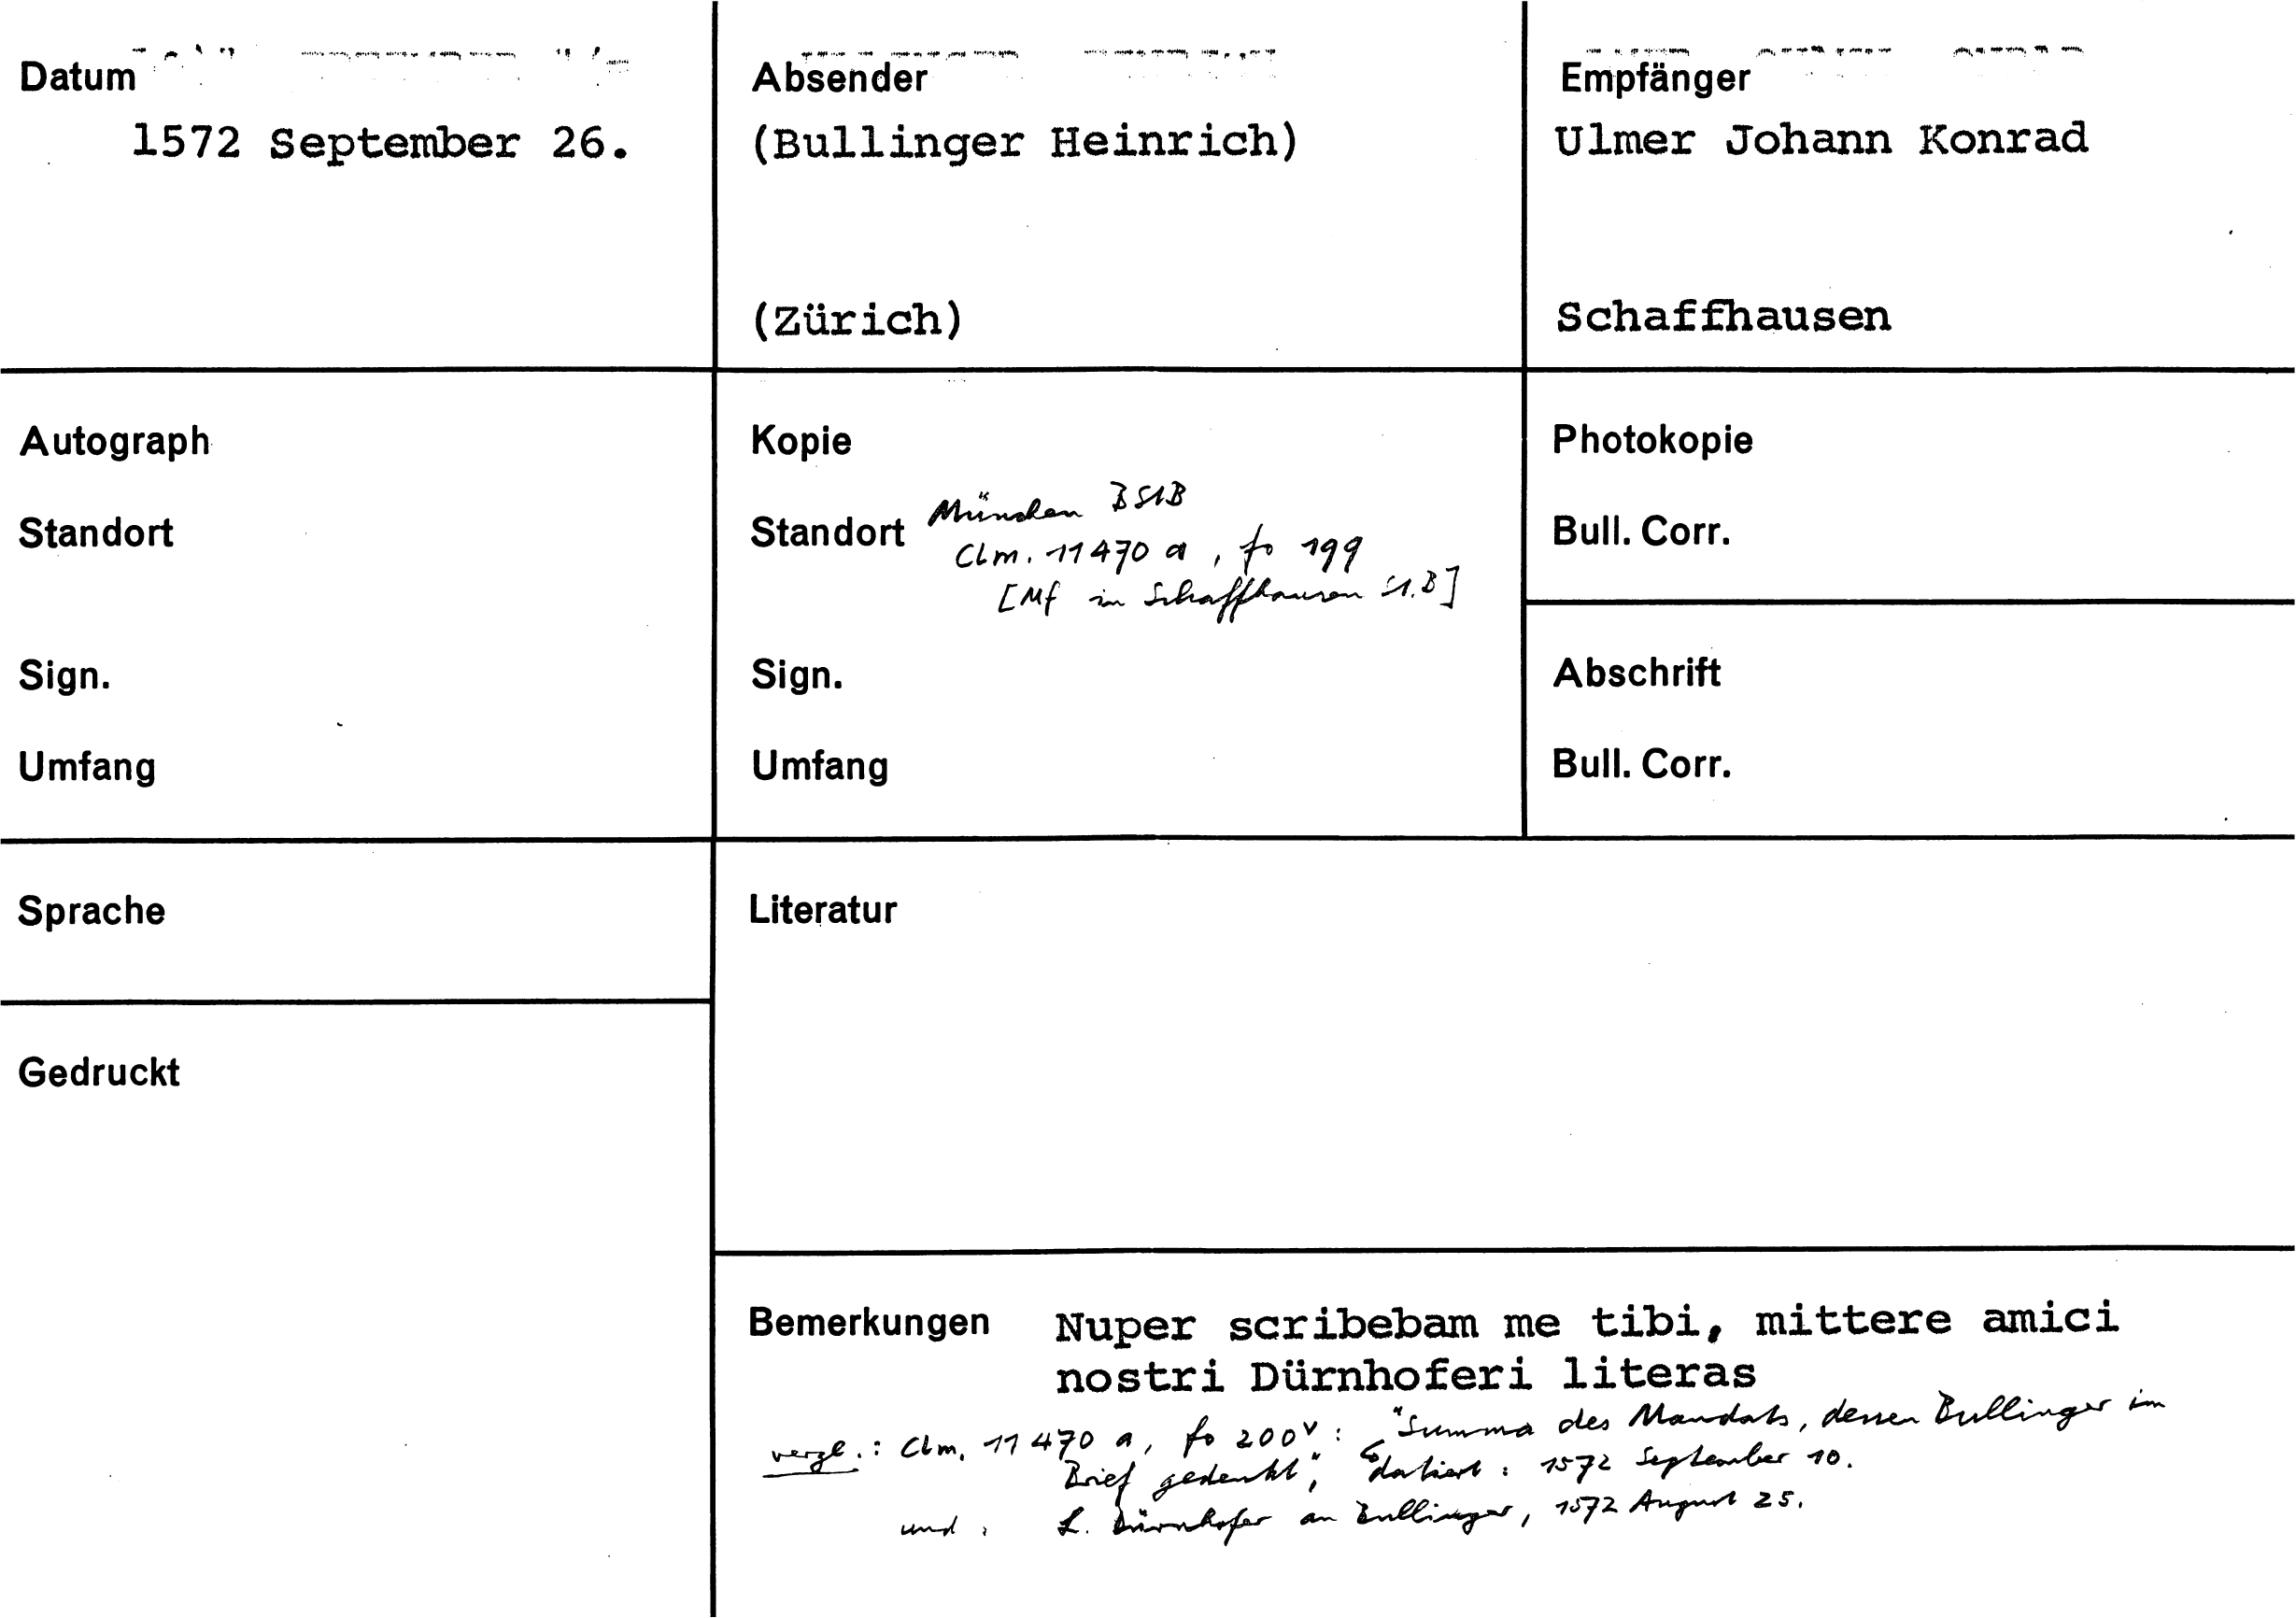 Datum
1572 September 26.
Absender
(Bullinger Heinrich)
(Zürich)
Empfänger
Ulmer Johann Konrad
Schaffhausen
Autograph
Standort
Sign.
Umfang
Kopie
Standort München BStB
Clm. 11470 a, fo 199
[Mf in Schaffhausen St.B]
Sign.
Umfang
Photokopie
Bull. Corr.
Abschrift
Bull. Corr.
Sprache
Gedruckt
Literatur
Bemerkungen Nuper scribebam me tibi, mittere amici
nostri Dürnhoferi literas
vergl.: Clm. 11470 a, fo 200v: "Summa des Mandats, dessen Bullinger im
Brief gedenkt", datiert: 1572 September 10.
und: L. Dürnhofer an Bullinger, 1572 August 25.